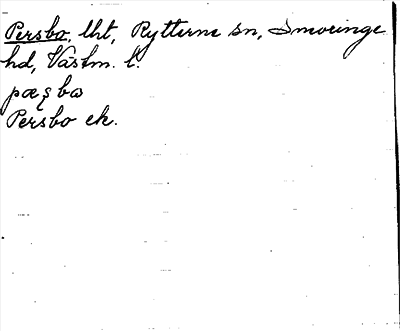 Persbo, lht, Rytterne sn, Snevringe
hd, Västm. l.
Persbo ek.